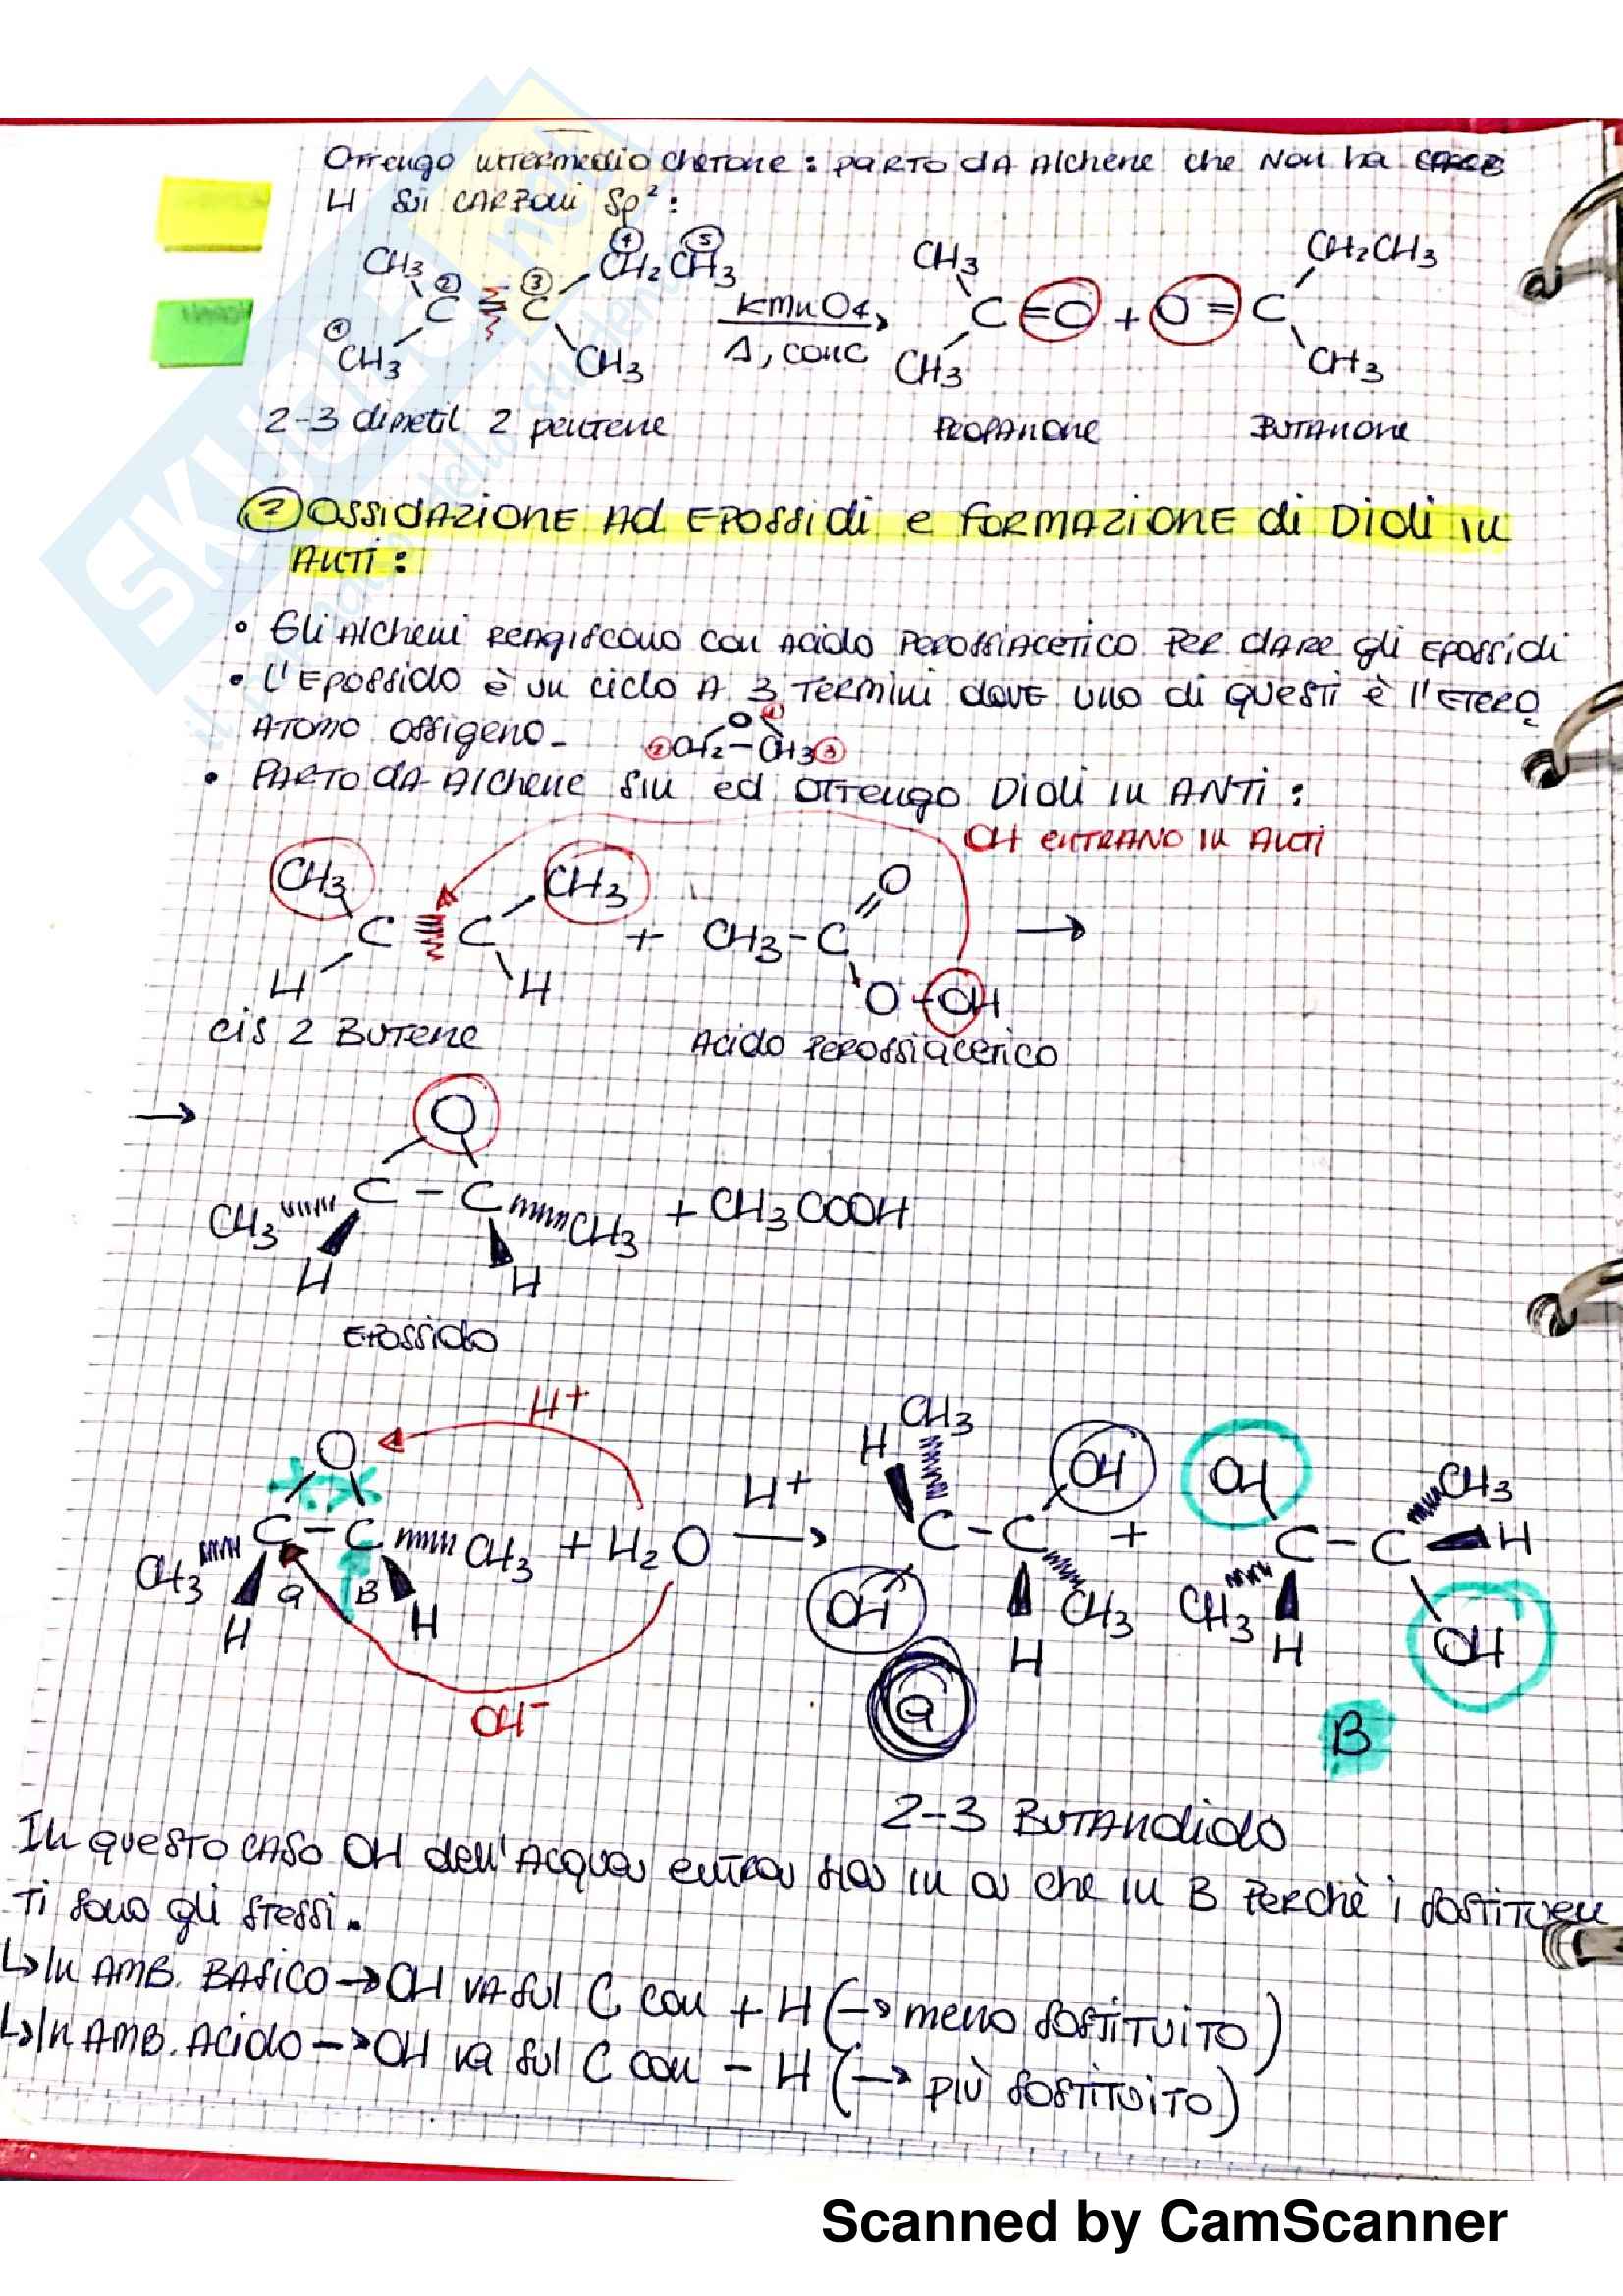 Ottengo intermedio chetone: parto da alchene che non ha
H sui carboni sp²:
CH3 ② ③ ④ CH2 ⑤ CH3 CH3 CH2CH3
C C KMnO4 C=O + O=C
① CH3 CH3 Δ, conc CH3 CH3
2-3 dimetil 2 pentene Propanone Butanone
② Ossidazione ad epossidi e formazione di dioli in
anti:
• Gli alcheni reagiscono con acido perossiacetico per dare gli epossidi
• L'epossido è un ciclo a 3 termini dove uno di questi è l'etero
atomo ossigeno. O ①
② CH2-CH3 ③
• Parto da alchene sin ed ottengo dioli in anti:
OH entrano in anti
CH3 CH3 O
C C + CH3-C →
H H O-OH
cis 2 butene Acido perossiacetico
→ O
CH3 C - C CH3 + CH3COOH
H H
Epossido
H+ CH3
O H OH OH CH3
H+
CH3 C - C CH3 + H2O → C - C + C - C H
H a B H OH H CH3 CH3 H OH
OH- a B
2-3 butandiolo
In questo caso OH dell'acqua entra sia in a che in B perchè i sostituen
ti sono gli stessi.
↳In amb. basico→OH va sul C con + H (→ meno sostituito)
↳In amb. acido→OH va sul C con - H (→ più sostituito)
Scanned by CamScanner
SKUOLA.net